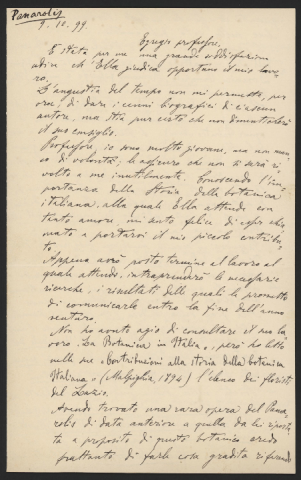 Panarolis
9. 12. 99
Egregio professore,
È stata per me una grande soddisfazione
udire ch'Ella giudica opportuno il mio lavo-
ro.
L'angustia del tempo non mi permette, per
ora, di dare i cenni biografici di ciascun
autore, ma stia pur certo che non dimenticherò
il suo consiglio.
Professore, io sono molto giovane, ma non man-
co di volontà; le assicuro che non si sarà ri-
volto a me inutilmente. Conoscendo l'im-
portanza della Storia della botanica
italiana, alla quale Ella attende con
tanto amore, mi sento felice di esser chia-
mato a portarvi il mio piccolo contribu-
to.
Appena avrò posto termine al lavoro al
quale attendo, intraprenderò le necessarie
ricerche, i risultati delle quali le prometto
di comunicarle entro la fine dell'anno
venturo.
Non ho avuto agio di consultare il suo la-
voro: La Botanica in Italia, però ho letto
nelle sue "Contribuzioni alla storia della botanica
italiana" (Malpighia, 1894) l'elenco dei floristi
del Lazio.
Avendo trovato una rara opera del Pana-
rolis di data anteriore a quella da lei riporta-
ta a proposito di questo botanico credo
frattanto di farle cosa gradita riferendo